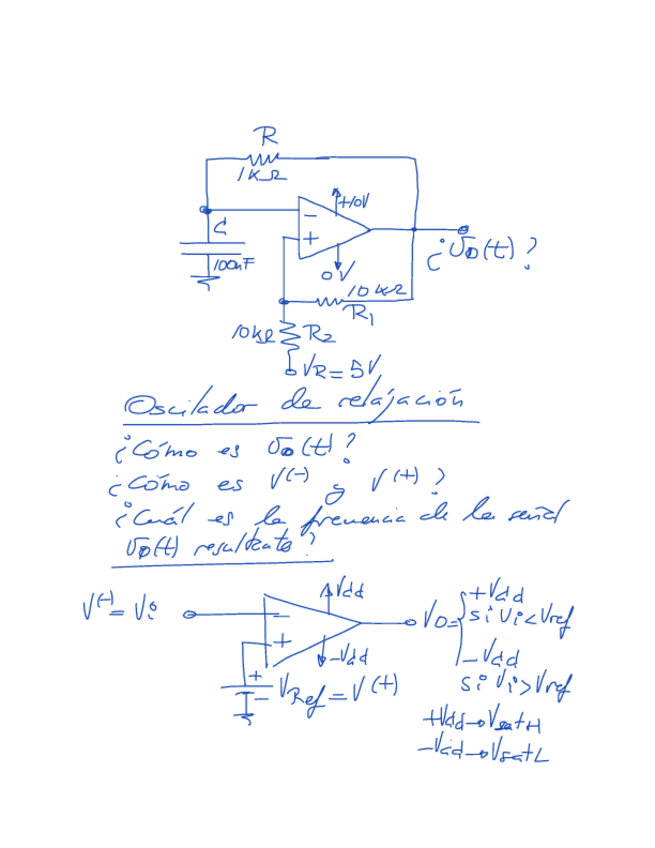 R
1KΩ
+10V
-
C
+
100nF
0V
¿vo(t)?
10KΩ
R1
10kΩ
R2
VR=5V
Oscilador de relajación
¿Cómo es vo(t)?
¿Cómo es V(-) y V(+)?
¿Cuál es la frecuencia de la señal
vo(t) resultante?
V(-)=Vi
-
+
Vdd
-Vdd
+
-
VRef=V(+)
Vo={
+Vdd
si Vi<Vref
-Vdd
si Vi>Vref
+Vdd→VsatH
-Vdd→VsatL